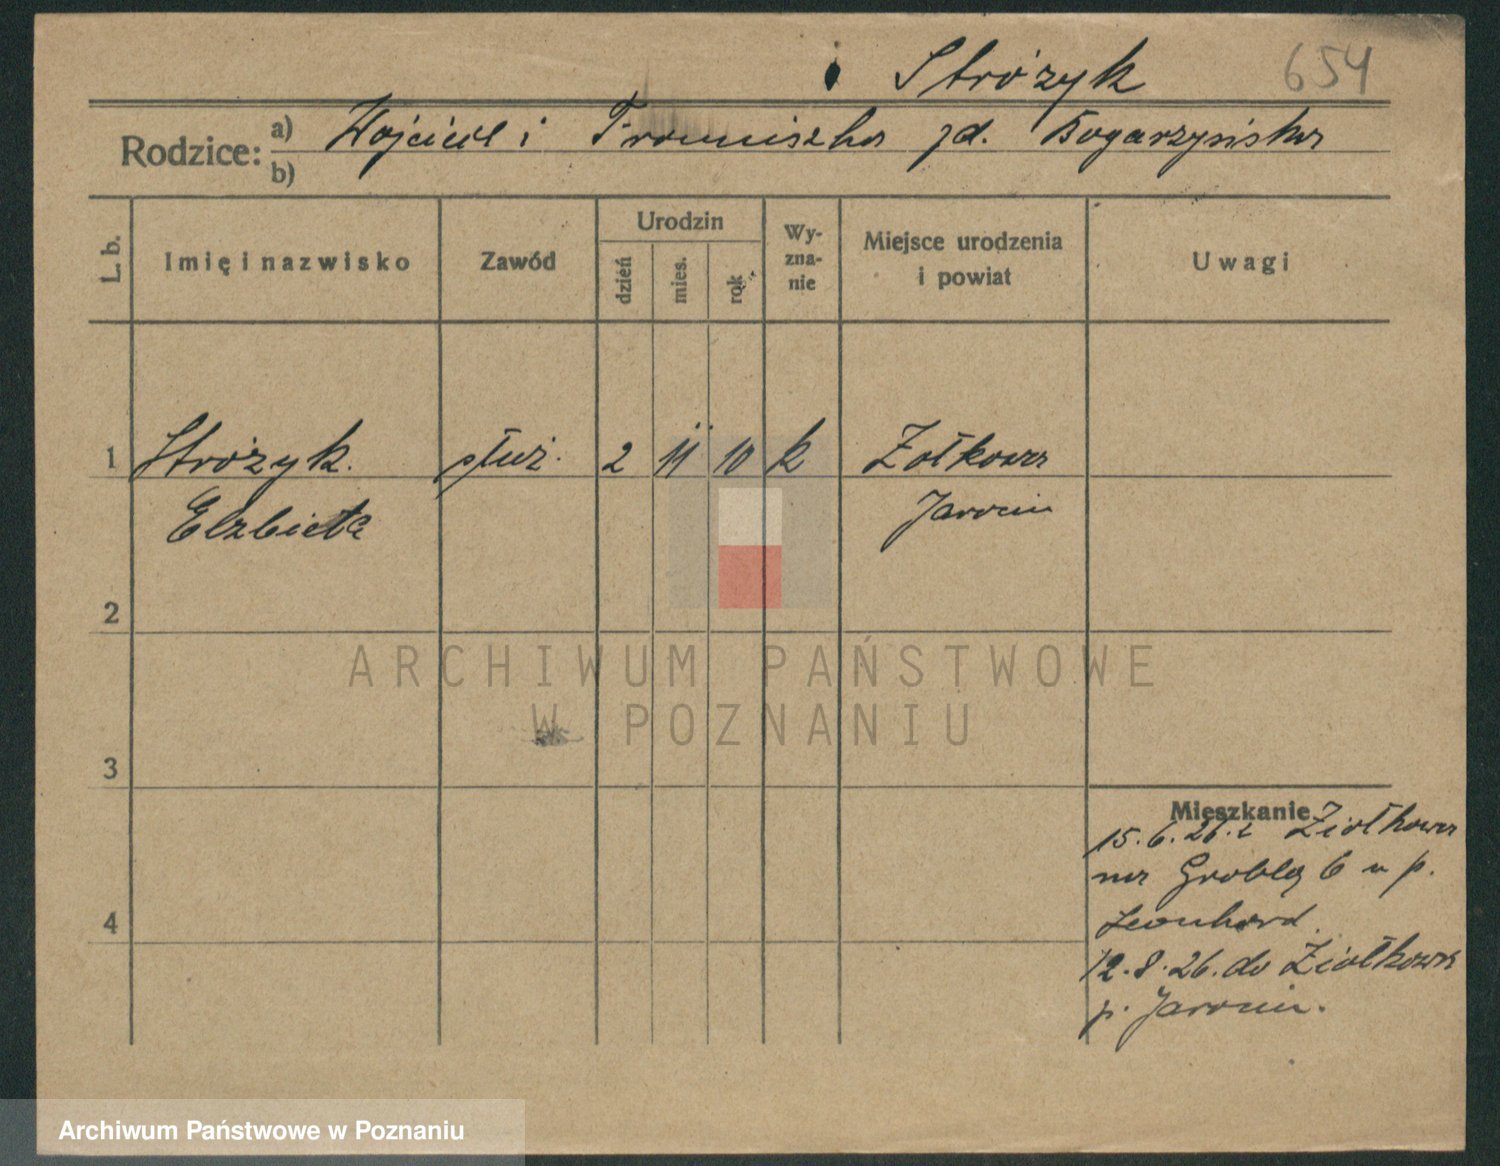 Stróżyk 654
Rodzice: a) Wojciech i Franciszka zd. Bogarzyńska
b)
L. b. Imię i nazwisko Zawód Urodzin dzień mies. rok Wyznanie Miejsce urodzenia i powiat Uwagi
1 Stróżyk służ. 2 11 10 k Żółkowa
Elżbieta Jarocin
2
ARCHIWUM PAŃSTWOWE
W POZNANIU
3
Mieszkanie
15.6.26. z Ziołkowa
na Groblę 6 u p.
Leonhard.
4
12.8.26. do Ziołkowa
p. Jarocin.
Archiwum Państwowe w Poznaniu